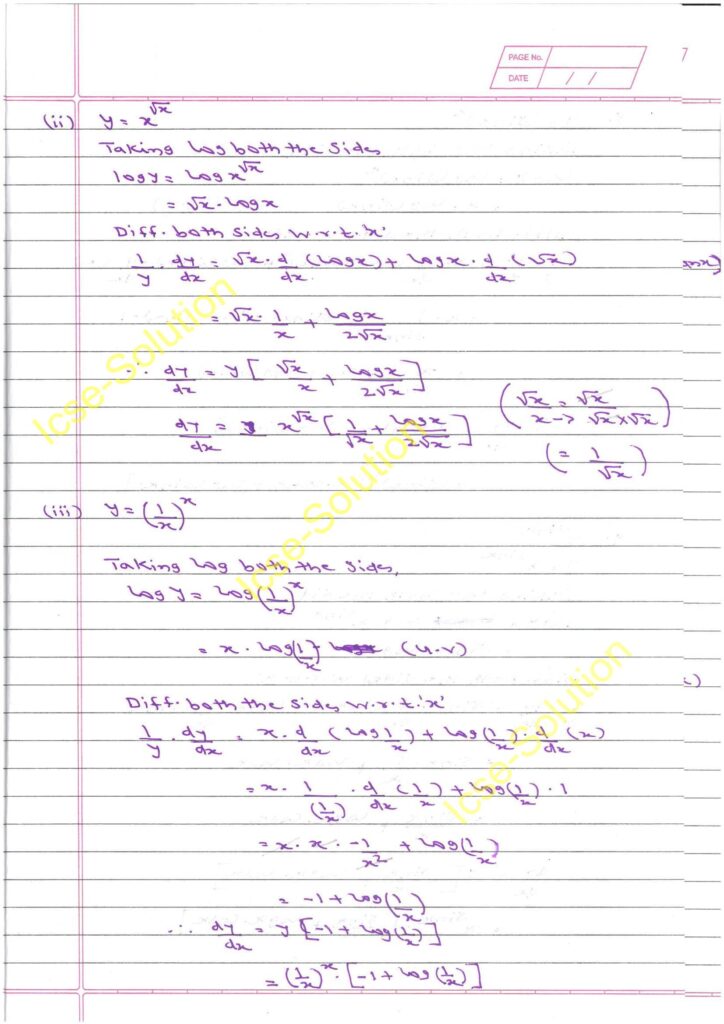 PAGE No.
DATE / /
7
(ii) y = x^√x
Taking log both the sides
log y = log x^√x
= √x · log x
Diff. both sides w.r.t. 'x'
1/y · dy/dx = √x · d/dx (log x) + log x · d/dx (√x)
= √x · 1/x + log x/2√x
∴ dy/dx = y [ √x/x + log x/2√x ]
dy/dx = x^√x [ 1/√x + log x/2√x ]
( √x/x = √x/√x×√x )
( = 1/√x )
(iii) y = (1/x)^x
Taking log both the sides,
log y = log (1/x)^x
= x · log(1/x) (u.v)
Diff. both the sides w.r.t. 'x'
1/y · dy/dx = x · d/dx (log 1/x) + log(1/x) · d/dx (x)
= x · 1/(1/x) · d/dx (1/x) + log(1/x) · 1
= x · x · -1/x² + log(1/x)
= -1 + log(1/x)
∴ dy/dx = y [-1 + log(1/x)]
= (1/x)^x · [-1 + log(1/x)]
Icse-Solution
Icse-Solution
Icse-Solution